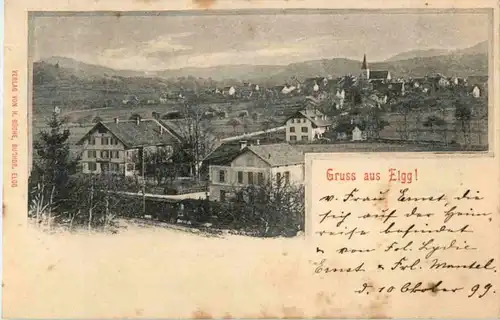 Gruss aus Elgg!
v. Frau Ernst, die
sich auf der Heim
reise befindet
& von Frl. Lydie
Ernst & Frl. Mantel.
d. 10 Oktober 99.
VERLAG VON H. BÜCHI, GUTHOF-ELGG